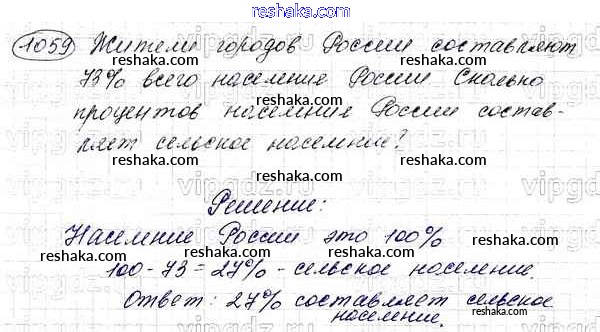 reshaka.com
1059 Жители городов России составляют
73% всего население России Сколько
reshaka.com
процентов население России состав-
reshaka.com
ляет сельское население?
reshaka.com
Решение:
reshaka.com
Население России это 100%
reshaka.com
100-73=27% - сельское население.
reshaka.com
Ответ: 27% составляет сельское
население.
reshaka.com
vipgdz.ru